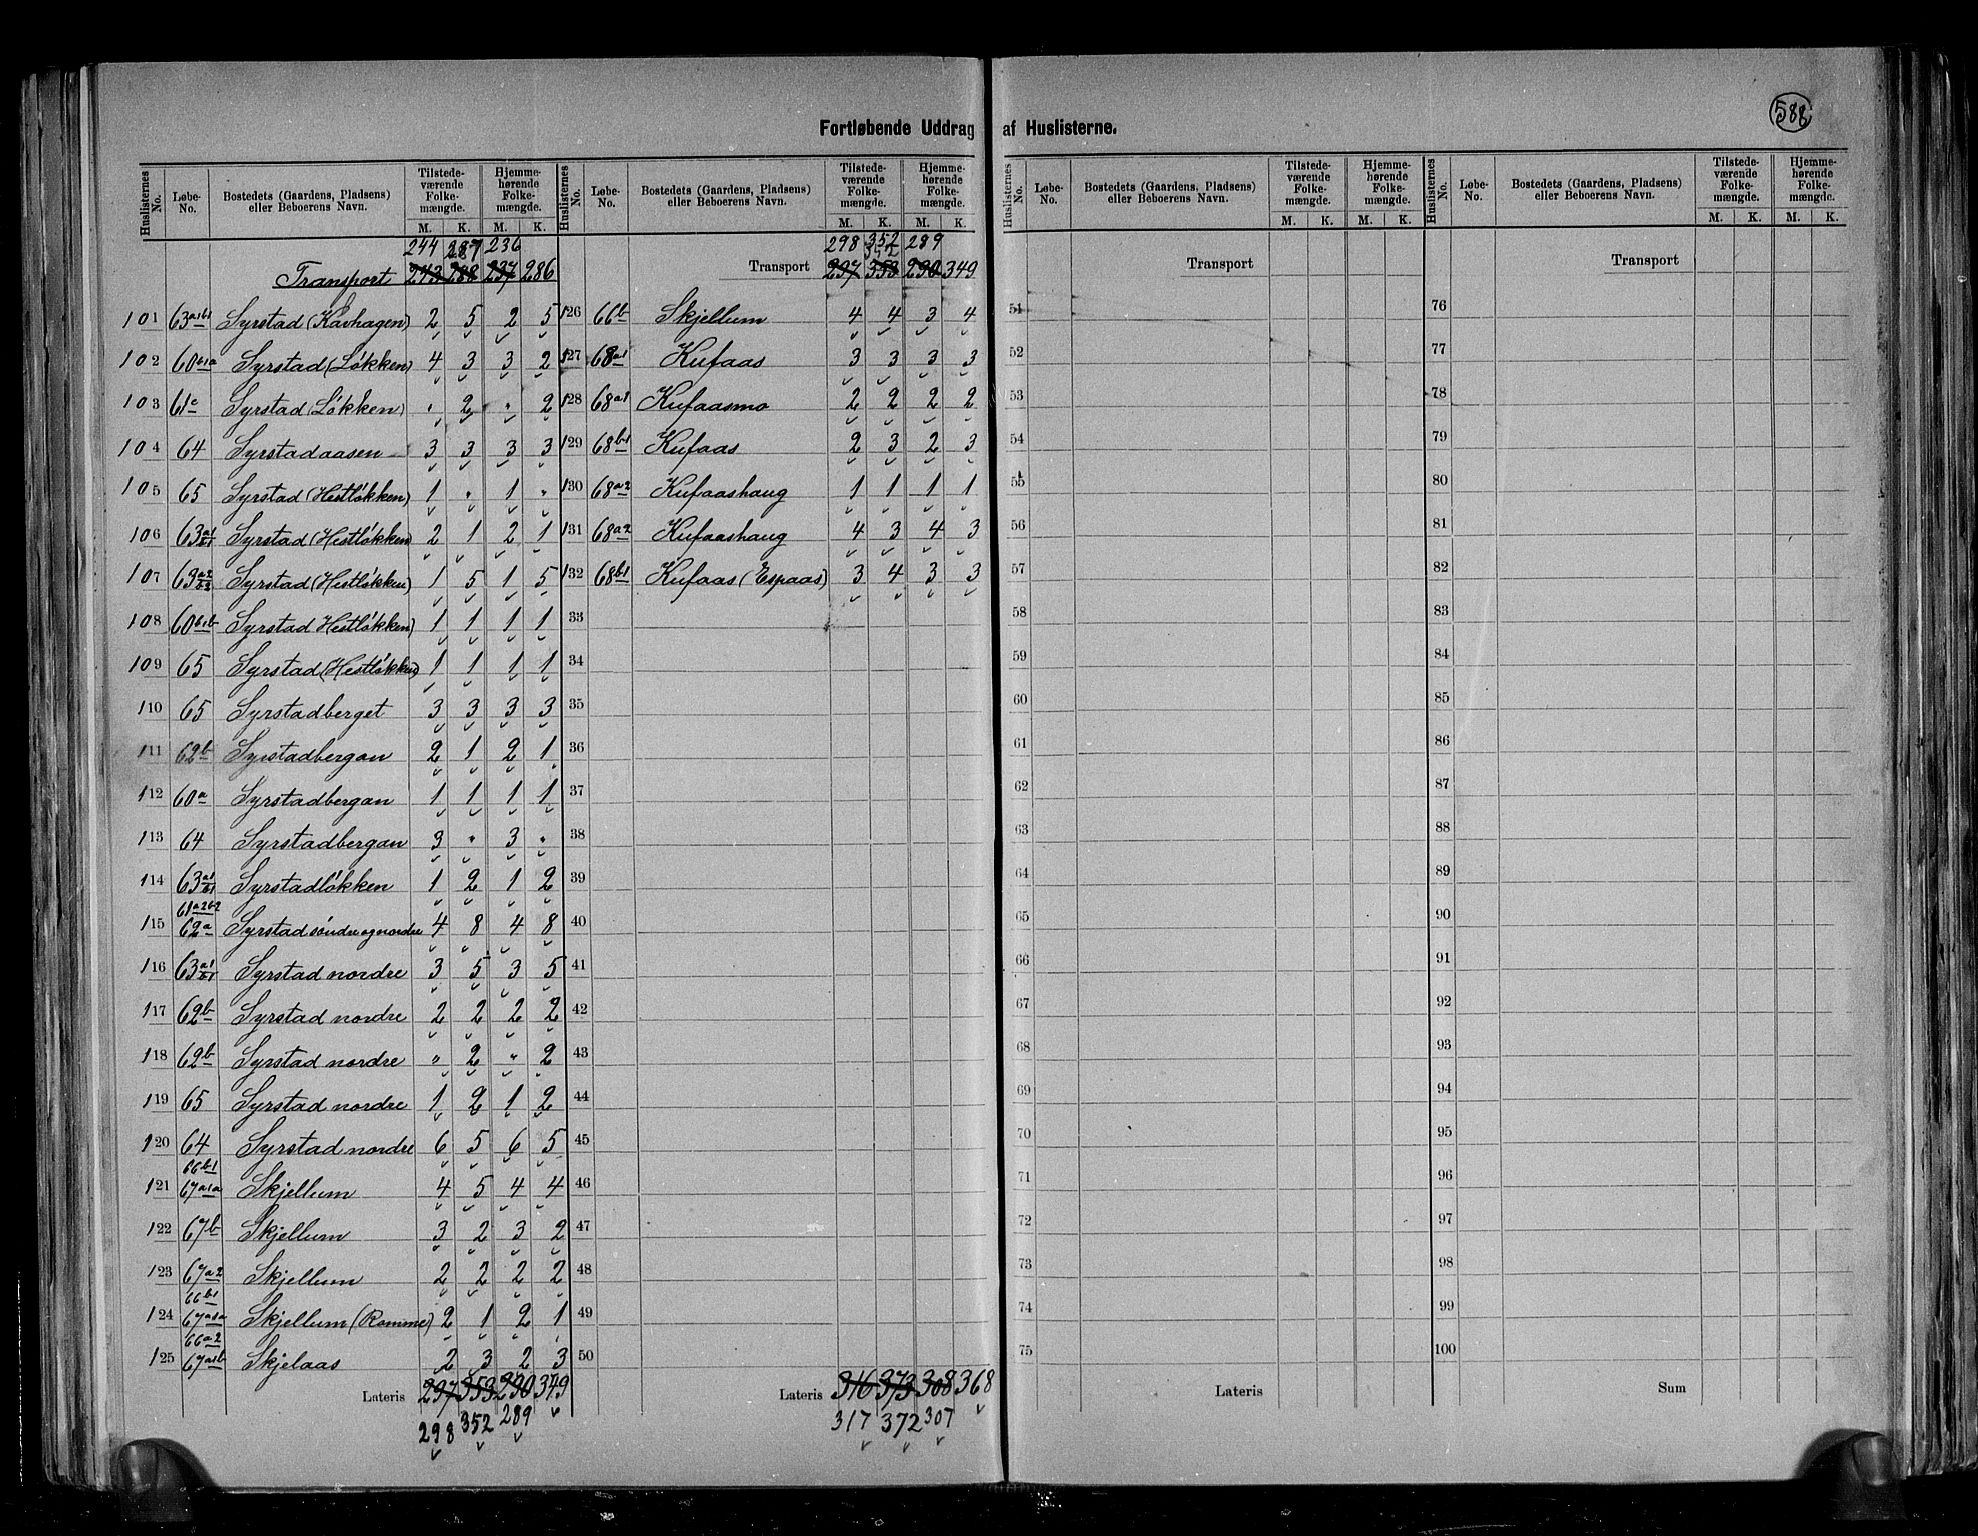 588
Fortløbende Uddrag af Huslisterne.
Huslisternes No. Løbe-No. Bostedets (Gaardens, Pladsens) eller Beboerens Navn. Tilstedeværende Folkemængde. M. K. Hjemmehørende Folkemængde. M. K.
244 287 236
Transport 243 288 237 286
101 63a1b1 Syrstad (Kavhagen) 2 5 2 5
102 60b1a Syrstad (Løkken) 4 3 3 2
103 61c Syrstad (Løkken) " 2 " 2
104 64 Syrstadaasen 3 3 3 3
105 65 Syrstad (Hestløkken) 1 " 1 "
106 63a1b1 Syrstad (Hestløkken) 2 1 2 1
107 63a2b2 Syrstad (Hestløkken) 1 5 1 5
108 60b1b Syrstad Hestløkken) 1 1 1 1
109 65 Syrstad (Hestløkken) 1 1 1 1
110 65 Syrstadberget 3 3 3 3
111 62b Syrstadbergan 2 1 2 1
112 60a Syrstadbergan 1 1 1 1
113 64 Syrstadbergan 3 " 3 "
114 63a1b1 Syrstadløkken 1 2 1 2
115 61a2b2 62a Syrstad søndre og nordre 4 8 4 8
116 63a1b1 Syrstad nordre 3 5 3 5
117 62b Syrstad nordre 2 2 2 2
118 62b Syrstad nordre " 2 " 2
119 65 Syrstad nordre 1 2 1 2
120 64 Syrstad nordre 6 5 6 5
121 66b1 67a1a Skjellum 4 5 4 4
122 67b Skjellum 3 2 3 2
123 67a2 Skjellum 2 2 2 2
124 66b1 67a1a Skjellum (Romme) 2 1 2 1
125 66a2 67a1b Skjelaas 2 3 2 3
Lateris 297 353 290 349
298 352 289
Huslisternes No. Løbe-No. Bostedets (Gaardens, Pladsens) eller Beboerens Navn. Tilstedeværende Folkemængde. M. K. Hjemmehørende Folkemængde. M. K.
298 352 289
Transport 297 353 290 349
126 66b Skjellum 4 4 3 4
127 68a1 Kufaas 3 3 3 3
128 68a1 Kufaasmo 2 2 2 2
129 68b1 Kufaas 2 3 2 3
130 68a2 Kufaashaug 1 1 1 1
131 68a2 Kufaashaug 4 3 4 3
132 68b1 Kufaas (Espaas) 3 4 3 3
33
34
35
36
37
38
39
40
41
42
43
44
45
46
47
48
49
50
Lateris 316 373 308 368
317 372 307
Huslisternes No. Løbe-No. Bostedets (Gaardens, Pladsens) eller Beboerens Navn. Tilstedeværende Folkemængde. M. K. Hjemmehørende Folkemængde. M. K.
Transport
51
52
53
54
55
56
57
58
59
60
61
62
63
64
65
66
67
68
69
70
71
72
73
74
75
Lateris
Huslisternes No. Løbe-No. Bostedets (Gaardens, Pladsens) eller Beboerens Navn. Tilstedeværende Folkemængde. M. K. Hjemmehørende Folkemængde. M. K.
Transport
76
77
78
79
80
81
82
83
84
85
86
87
88
89
90
91
92
93
94
95
96
97
98
99
100
Sum